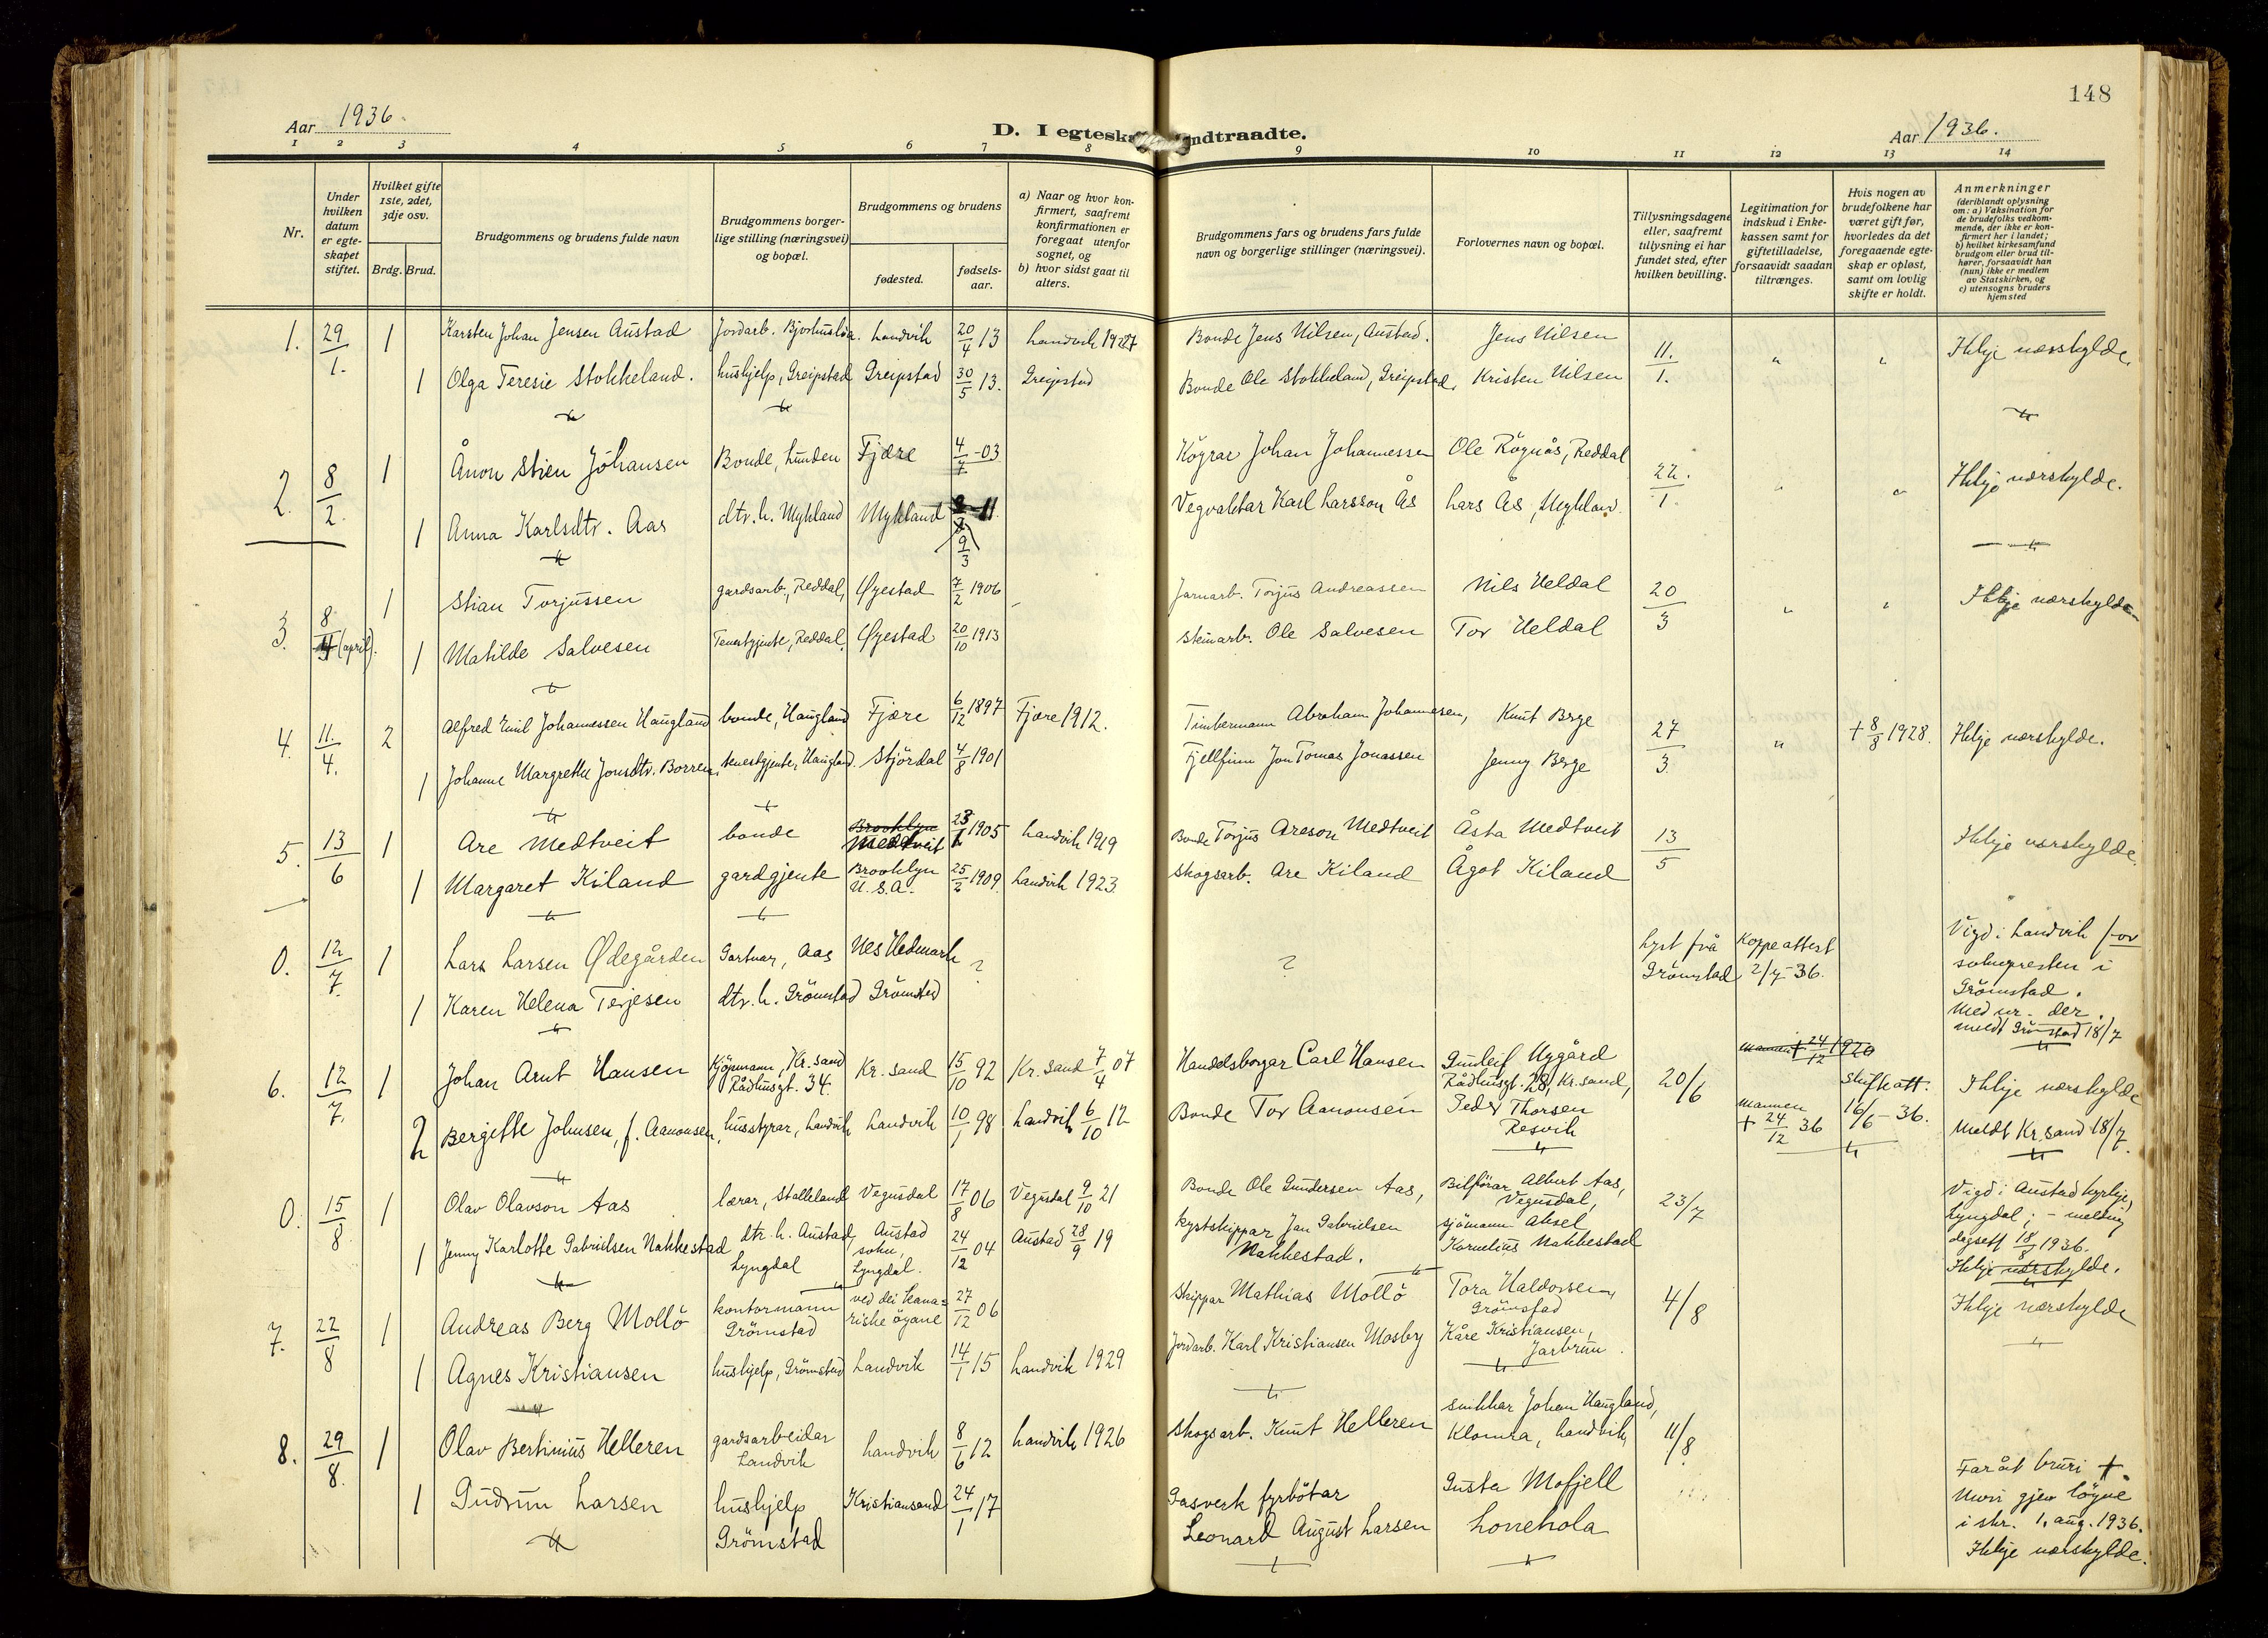 148
Aar 1936.
D. I egteska
ndtraadte.
Aar 1936.
1 2 3 4 5 6 7 8 9 10 11 12 13 14
Nr.
Under hvilken datum er egteskapet stiftet.
Hvilket gifte 1ste, 2det, 3dje osv.
Brdg. Brud.
Brudgommens og brudens fulde navn
Brudgommens borgerlige stilling (næringsvei) og bopæl.
Brudgommens og brudens
fødested.
fødselsaar.
a) Naar og hvor konfirmert, saafremt konfirmationen er foregaat utenfor sognet, og
b) hvor sidst gaat til alters.
Brudgommens fars og brudens fars fulde navn og borgerlige stillinger (næringsvei).
Forlovernes navn og bopæl.
Tillysningsdagene eller, saafremt tillysning ei har fundet sted, efter hvilken bevilling.
Legitimation for indskud i Enkekassen samt for giftetilladelse, forsaavidt saadan tiltrænges.
Hvis nogen av brudefolkene har været gift før, hvorledes da det foregaaende egteskap er opløst, samt om lovlig skifte er holdt.
Anmerkninger
(deriblandt oplysning om: a) Vaksination for de brudefolks vedkommende, der ikke er konfirmert her i landet;
b) hvilket kirkesamfund brudgom eller brud tilhører, forsaavidt han (hun) ikke er medlem av Statskirken, og
c) utensogns bruders hjemsted
1. 29/1. 1 Karsten Johan Jensen Austad Jordarb. Landvik 20/4 13 Landvik 1927 Bonde Jens Nilsen, Austad. Jens Nilsen 11./1. " " Ikkje nærskylde.
1 Olga Teresie Stokkeland. hushjelp, Greipstad Greipstad 30/5 13. Greipstad Bonde Ole Stokkeland, Greipstad, Kristen Nilsen
2. 8/2. 1 Ånon Stien Jóhansen Bonde, Lunden Fjære 4/7 -03 Johan Johannessen Ole Rögnås, Reddal 22./1. " " Ikkje nærskylde.
1 Anna Karlsdtr. Aas dtr. h. Mykland Mykland 11. 9/3 Vegvaktar Karl Larsson Ås Lars Ås, Mykland.
3. 8/4 (april). 1 Stian Torjussen gardsarb., Reddal, Øyestad 7/2 1906 Jarnarb. Torjus Andreassen Nils Heldal 20/3 " " Ikkje nærskylde
1 Matilde Salvesen Tenestgjente, Reddal, Øyestad 20/10 1913 Steinarb. Ole Salvesen Tor Heldal
4. 11./4. 2 Alfred Emil Johannessen Haugland bonde, Haugland Fjære 6/12 1897 Fjære 1912. Timbermann Abraham Johannesen, Knut Berge 27/3. " † 8/8 1928. Ikkje nærskylde.
1 Johanne Margrethe Jonsdtr. Borren, tenestgjente, Haugland. Stjördal 4/8 1901 Fjellfinn Jon Tomas Jonassen Jenny Berge
5. 13/6 1 Are Medtveit bonde Brooklyn Medtveit 23/1 1905 Landvik 1919 Bonde Torjus Areson Medtveit Åsta Medtveit 13/5 Ikkje nærskylde.
1 Margaret Kiland gardgjente Brooklyn U.S.A. 25/2 1909. Landvik 1923 Skogsarb. Are Kiland Ågot Kiland
0. 12/7. 1 Lars Larsen Ødegården Gartnar, Aas Nes Hedmark ? ? Lyst frå Grömstad Koppeattest 2/7-36. Vigd i Landvik for soknepresten i Grömstad. Med nr. der. meldt Grömstad 18/7
1 Karen Helena Terjesen dtr. h. Grömstad Grömstad
6. 12/7. 1 Johan Arnt Hansen Kjöpmann, Kr.sand Rådhusgt. 34. Kr. sand 15/10 92 Kr. Sand 7/4 07 Handelsborgar Carl Hansen Gunleif Nygård Rådhusgt. 28, Kr.sand, 20/6 mannen † 24/12 1920 Skifteatt. Ikkje nærskylde
2 Bergitte Johnsen, f. Aanonsen, husstyrar, Landvik Landvik 10/1 98 Landvik 6/10 12 Bonde Tor Aanonsen Peder Thorsen Resvik mannen † 24/12 36 16/6-36. Meldt Kr.sand 18/7.
0. 15/8 1 Olav Olavson Aas lærar, Stalleland Vegusdal 17/8 06 Vegusdal 9/10 21 Bonde Ole Gundersen Aas, Bilförar Albert Aas, Vegusdal, 23/7 Vigd i Austad kyrkje, Lyngdal; - melding dagsett 18/8 1936. Ikkje nærskylde.
1 Jenny Karlotte Gabrielsen Nakkestad dtr. h. Austad, Lyngdal Austad sokn, Lyngdal. 24/12 04 Austad 28/9 19 Kystskippar Jan Gabrielsen Nakkestad. sjömann Aksel Kornelius Nakkestad
7. 22/8 1 Andreas Berg Mollö kontormann Grömstad ved dei Kanariske öyane 27/12 06 Skippar Mathias Mollö Tora Haldorsen, Grömstad 4/8 Ikkje nærskylde
1 Agnes Kristiansen hushjelp, Grömstad Landvik 14/1 15 Landvik 1929 Jordarb. Karl Kristiansen Mosby Kåre Kristiansen, Jarbrun.
8. 29/8. 1 Olav Bertinius Helleren gardsarbeidar Landvik Landvik 8/6 12 Landvik 1926 Skogsarb. Knut Helleren snikkar Johan Haugland, Klomra, Landvik, 11/8 Far åt bruri †. Mori gjev löyve i skr. 1. aug. 1936. Ikkje nærskylde.
1 Gudrun Larsen hushjelp Grömstad Kristiansand 24/1 17 Gasverk fyrbötar Leonard August Larsen Gusta Mofjell Lonehola